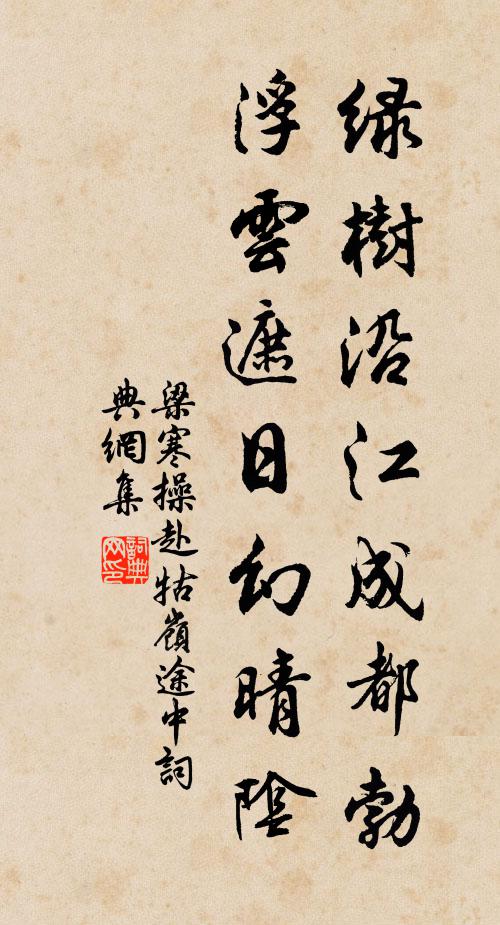 绿樹沿江成都勃
浮雲遮日幻晴陰
梁寒操赴牯嶺途中詞
典網集
詞典网印